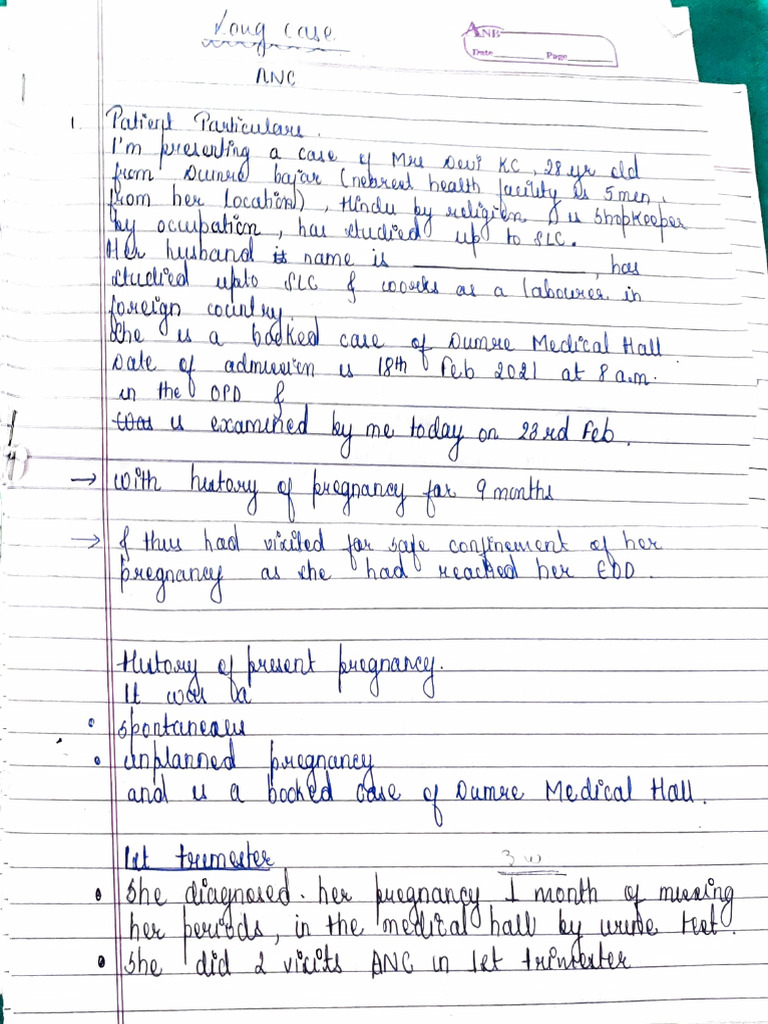 Long case
ANB
Date Page
ANC
1. Patient Particulars.
I'm presenting a case of Mrs Devi KC, 28 yr old
from Dumre bajar (nearest health facility is 5 min.
from her location), Hindu by religion & is shopkeeper
by occupation, has studied up to SLC.
Her husband is name is ____________, has
studied upto SLC & works as a labourer in
foreign country
She is a booked case of Dumre Medical Hall.
Date of admission is 18th Feb 2021 at 8 a.m.
in the OPD &
was is examined by me today on 23rd Feb.
→ with history of pregnancy for 9 months
→ & thus had visited for safe confinement of her
pregnancy as she had reached her EDD.
History of present pregnancy.
It was a
• spontaneous
• unplanned pregnancy
and is a booked case of Dumre Medical Hall.
1st trimester
3 w
• She diagnosed her pregnancy 1 month of missing
her periods, in the medical hall by urine test.
• She did 2 visits ANC in 1st trimester